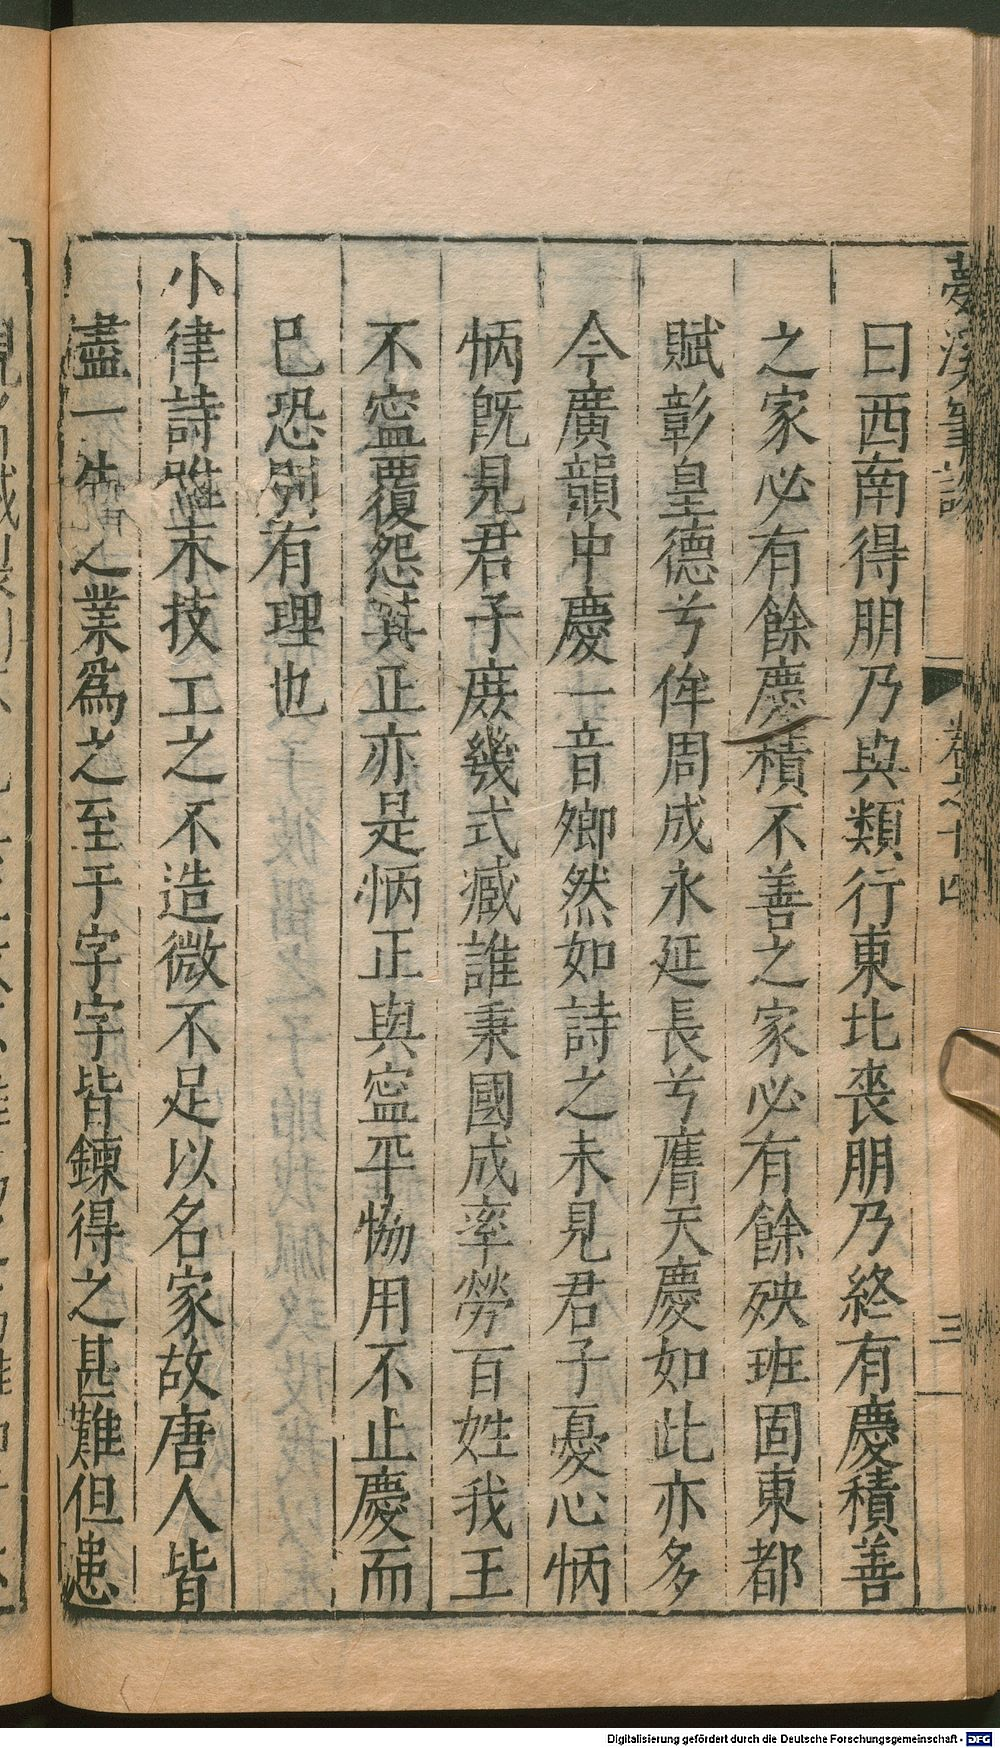 夢溪筆談 卷之十四 三
曰西南得朋乃與類行東北喪朋乃終有慶積善
之家必有餘慶積不善之家必有餘殃班固東都
賦彰皇德兮侔周成永延長兮膺天慶如此亦多
今廣韻中慶一音卿然如詩之未見君子憂心怲
怲既見君子庶幾式臧誰秉國成卒勞百姓我王
不寍覆怨其正亦是怲正與寍平協用不止慶而
已恐別有理也
小律詩雖末技工之不造微不足以名家故唐人皆
盡一生之業爲之至于字字皆鍊得之甚難但患
Digitalisierung gefördert durch die Deutsche Forschungsgemeinschaft - DFG